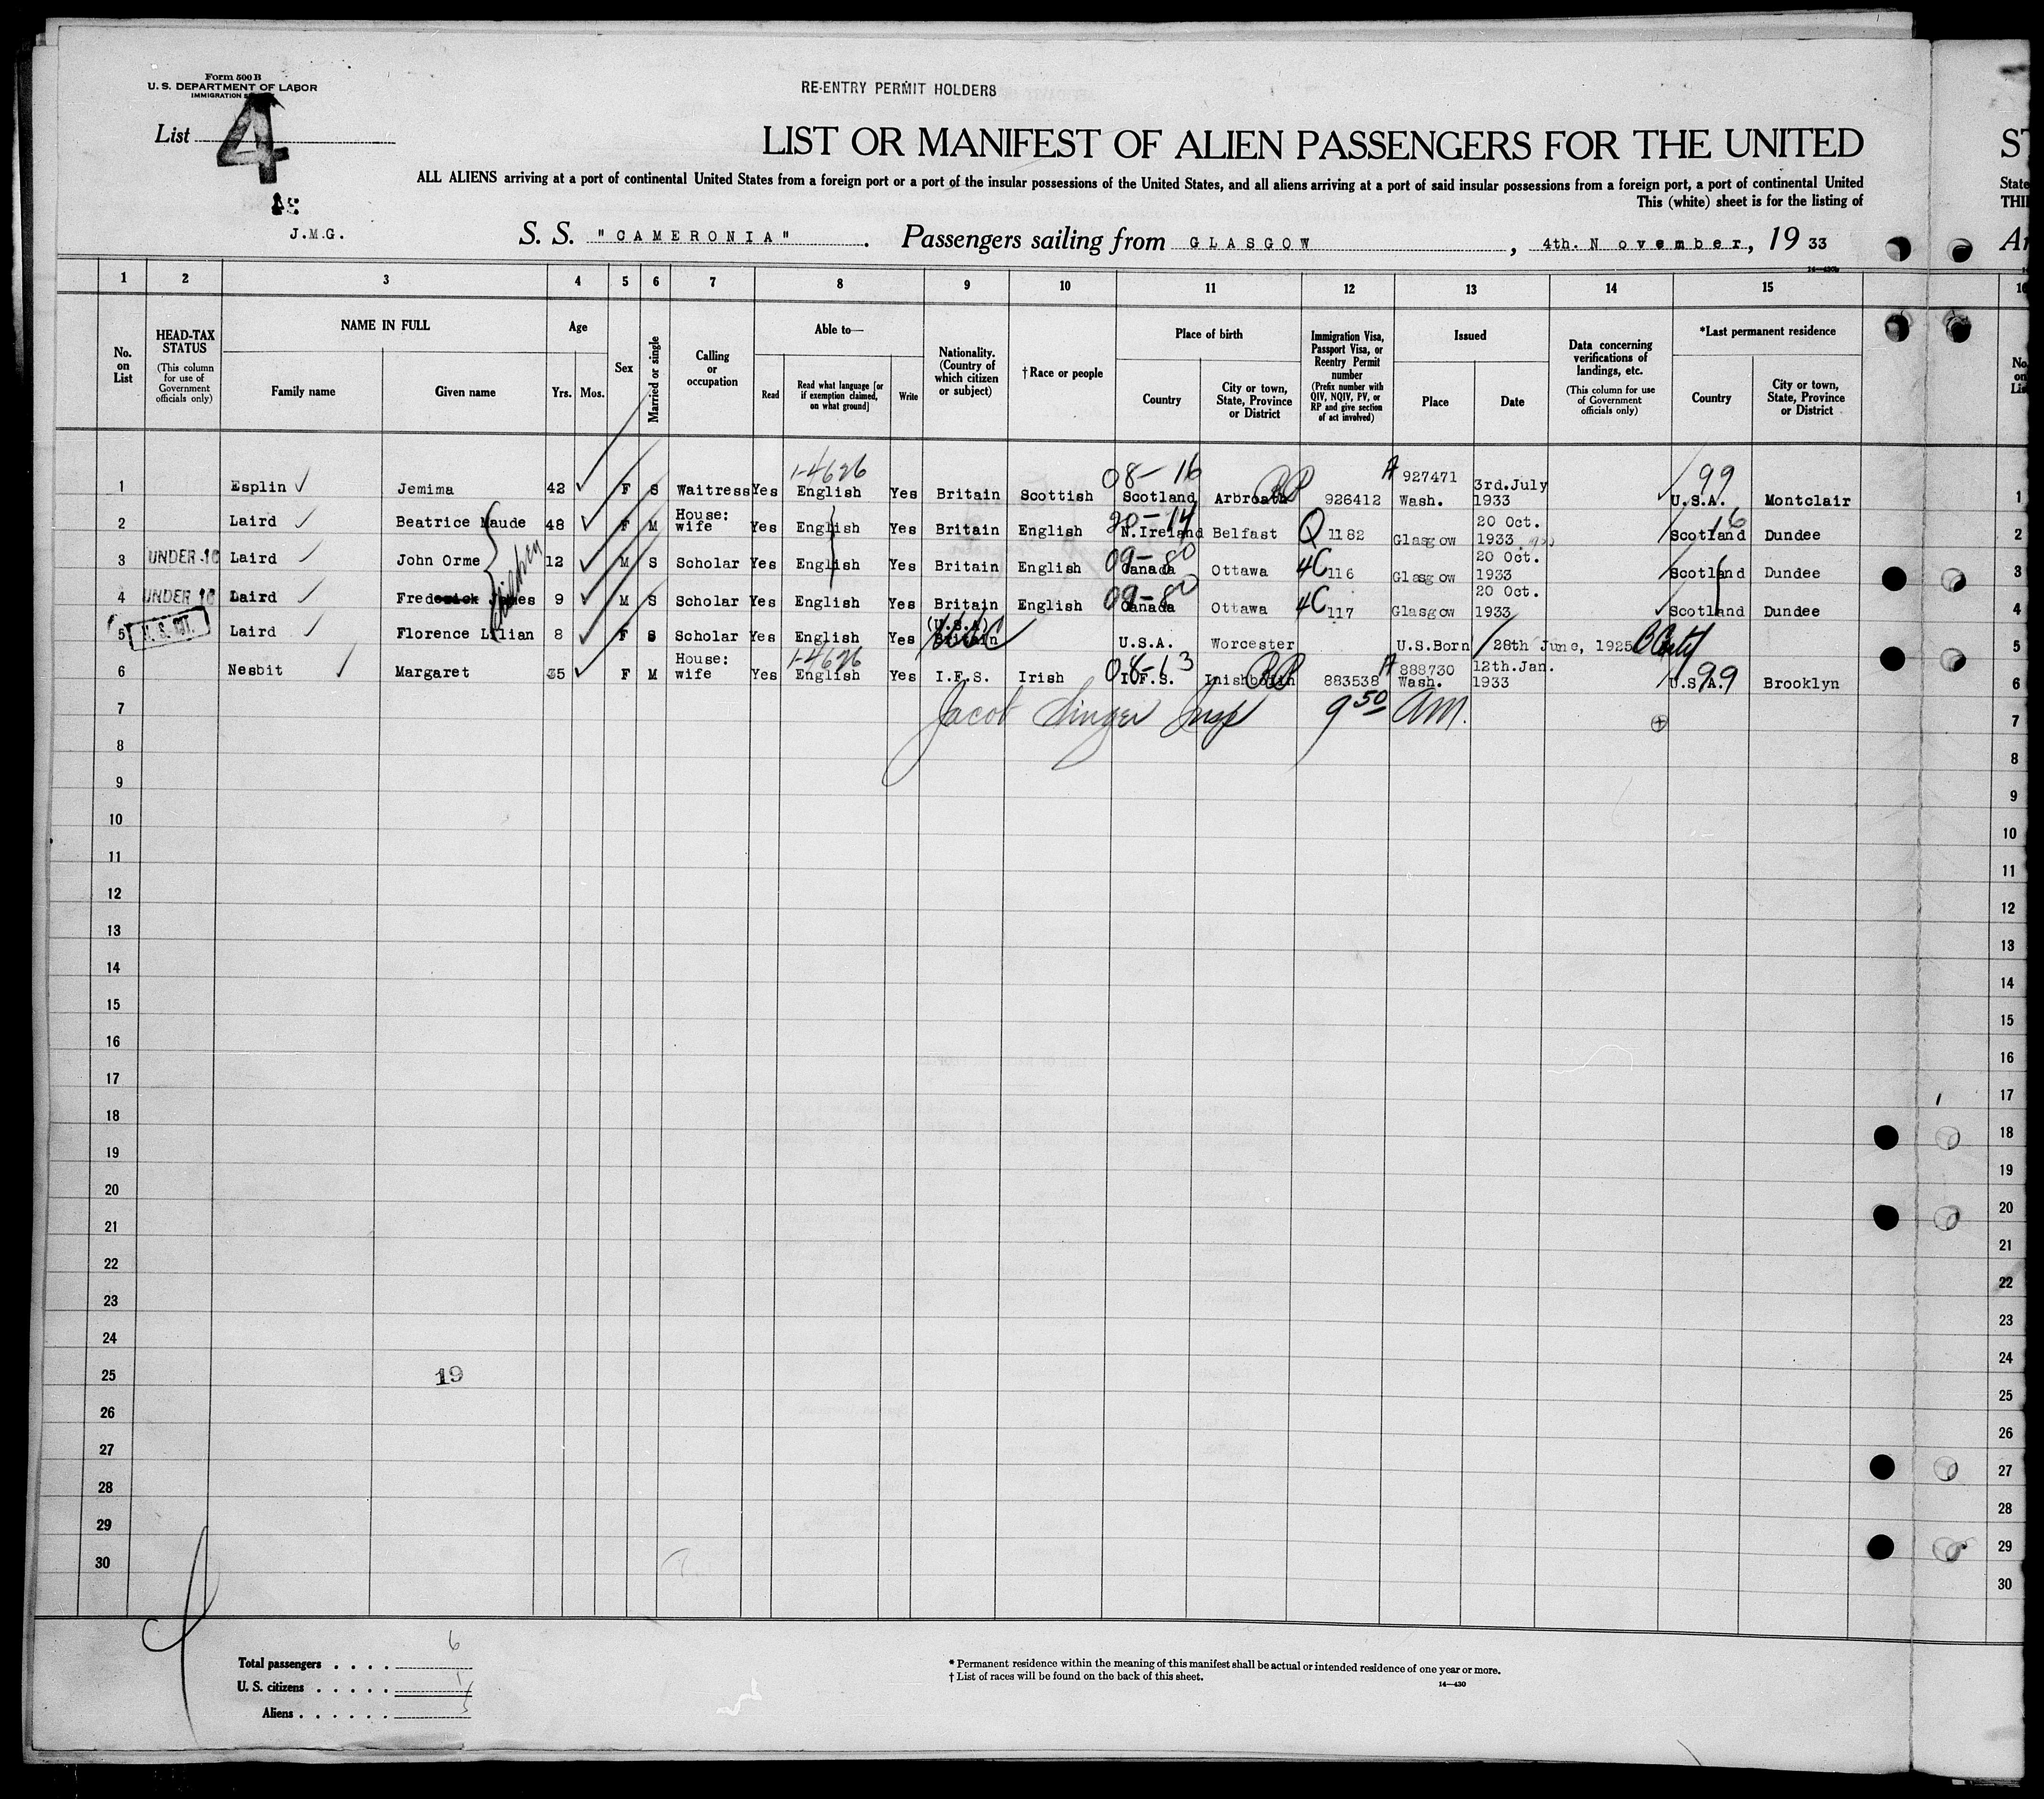 Form 500 B
U. S. DEPARTMENT OF LABOR
IMMIGRATION
RE-ENTRY PERMIT HOLDERS
List 4
LIST OR MANIFEST OF ALIEN PASSENGERS FOR THE UNITED
ST
ALL ALIENS arriving at a port of continental United States from a foreign port or a port of the insular possessions of the United States, and all aliens arriving at a port of said insular possessions from a foreign port, a port of continental United
State
This (white) sheet is for the listing of
THI
J.M.G.
S. S. "CAMERONIA". Passengers sailing from GLASGOW, 4th. November, 19 33
1 2 3 4 5 6 7 8 9 10 11 12 13 14 15
No. on List
HEAD-TAX STATUS
(This column for use of Government officials only)
NAME IN FULL
Family name
Given name
Age
Yrs. Mos.
Sex
Married or single
Calling or occupation
Able to—
Read
Read what language [or if exemption claimed, on what ground]
Write
Nationality. (Country of which citizen or subject)
†Race or people
Place of birth
Country
City or town, State, Province or District
Immigration Visa, Passport Visa, or Reentry Permit number
(Prefix number with QIV, NQIV, PV, or RP and give section of act involved)
Issued
Place
Date
Data concerning verifications of landings, etc.
(This column for use of Government officials only)
*Last permanent residence
Country
City or town, State, Province or District
1-4626 08-16 A 927471 99
1 Esplin Jemima 42 F S Waitress Yes English Yes Britain Scottish Scotland Arbroath RP 926412 Wash. 3rd.July 1933 U.S.A. Montclair 1
2 Laird Beatrice Maude 48 F M House: wife Yes English Yes Britain English 20-14 N.Ireland Belfast Q 1182 Glasgow 20 Oct. 1933 Scotland 16 Dundee 2
3 UNDER 16 Laird John Orme 12 M S Scholar Yes English Yes Britain English 09-80 Canada Ottawa 4C 116 Glasgow 20 Oct. 1933 Scotland Dundee 3
4 UNDER 16 Laird Frederick James 9 M S Scholar Yes English Yes Britain English 09-80 Canada Ottawa 4C 117 Glasgow 20 Oct. 1933 Scotland Dundee 4
children
5 U. S. CIT. Laird Florence Lilian 8 F S Scholar Yes English Yes (U.S.A) Britain USC U.S.A. Worcester U.S.Born 28th June, 1925 5
6 Nesbit Margaret 35 F M House: wife Yes 1-4626 English Yes I.F.S. Irish 08-13 I.F.S. Inishbofin RP 883538 A 888730 Wash. 12th.Jan. 1933 U.S.A. 99 Brooklyn 6
7 Jacob Singer Insp 9 50 AM. 7
8 8
9 9
10 10
11 11
12 12
13 13
14 14
15 15
16 16
17 17
18 18
19 19
20 20
21 21
22 22
23 23
24 24
25 19 25
26 26
27 27
28 28
29 29
30 30
Total passengers . . . . 6
U. S. citizens . . . . . 1
Aliens . . . . . . 5
* Permanent residence within the meaning of this manifest shall be actual or intended residence of one year or more.
† List of races will be found on the back of this sheet.
14—430